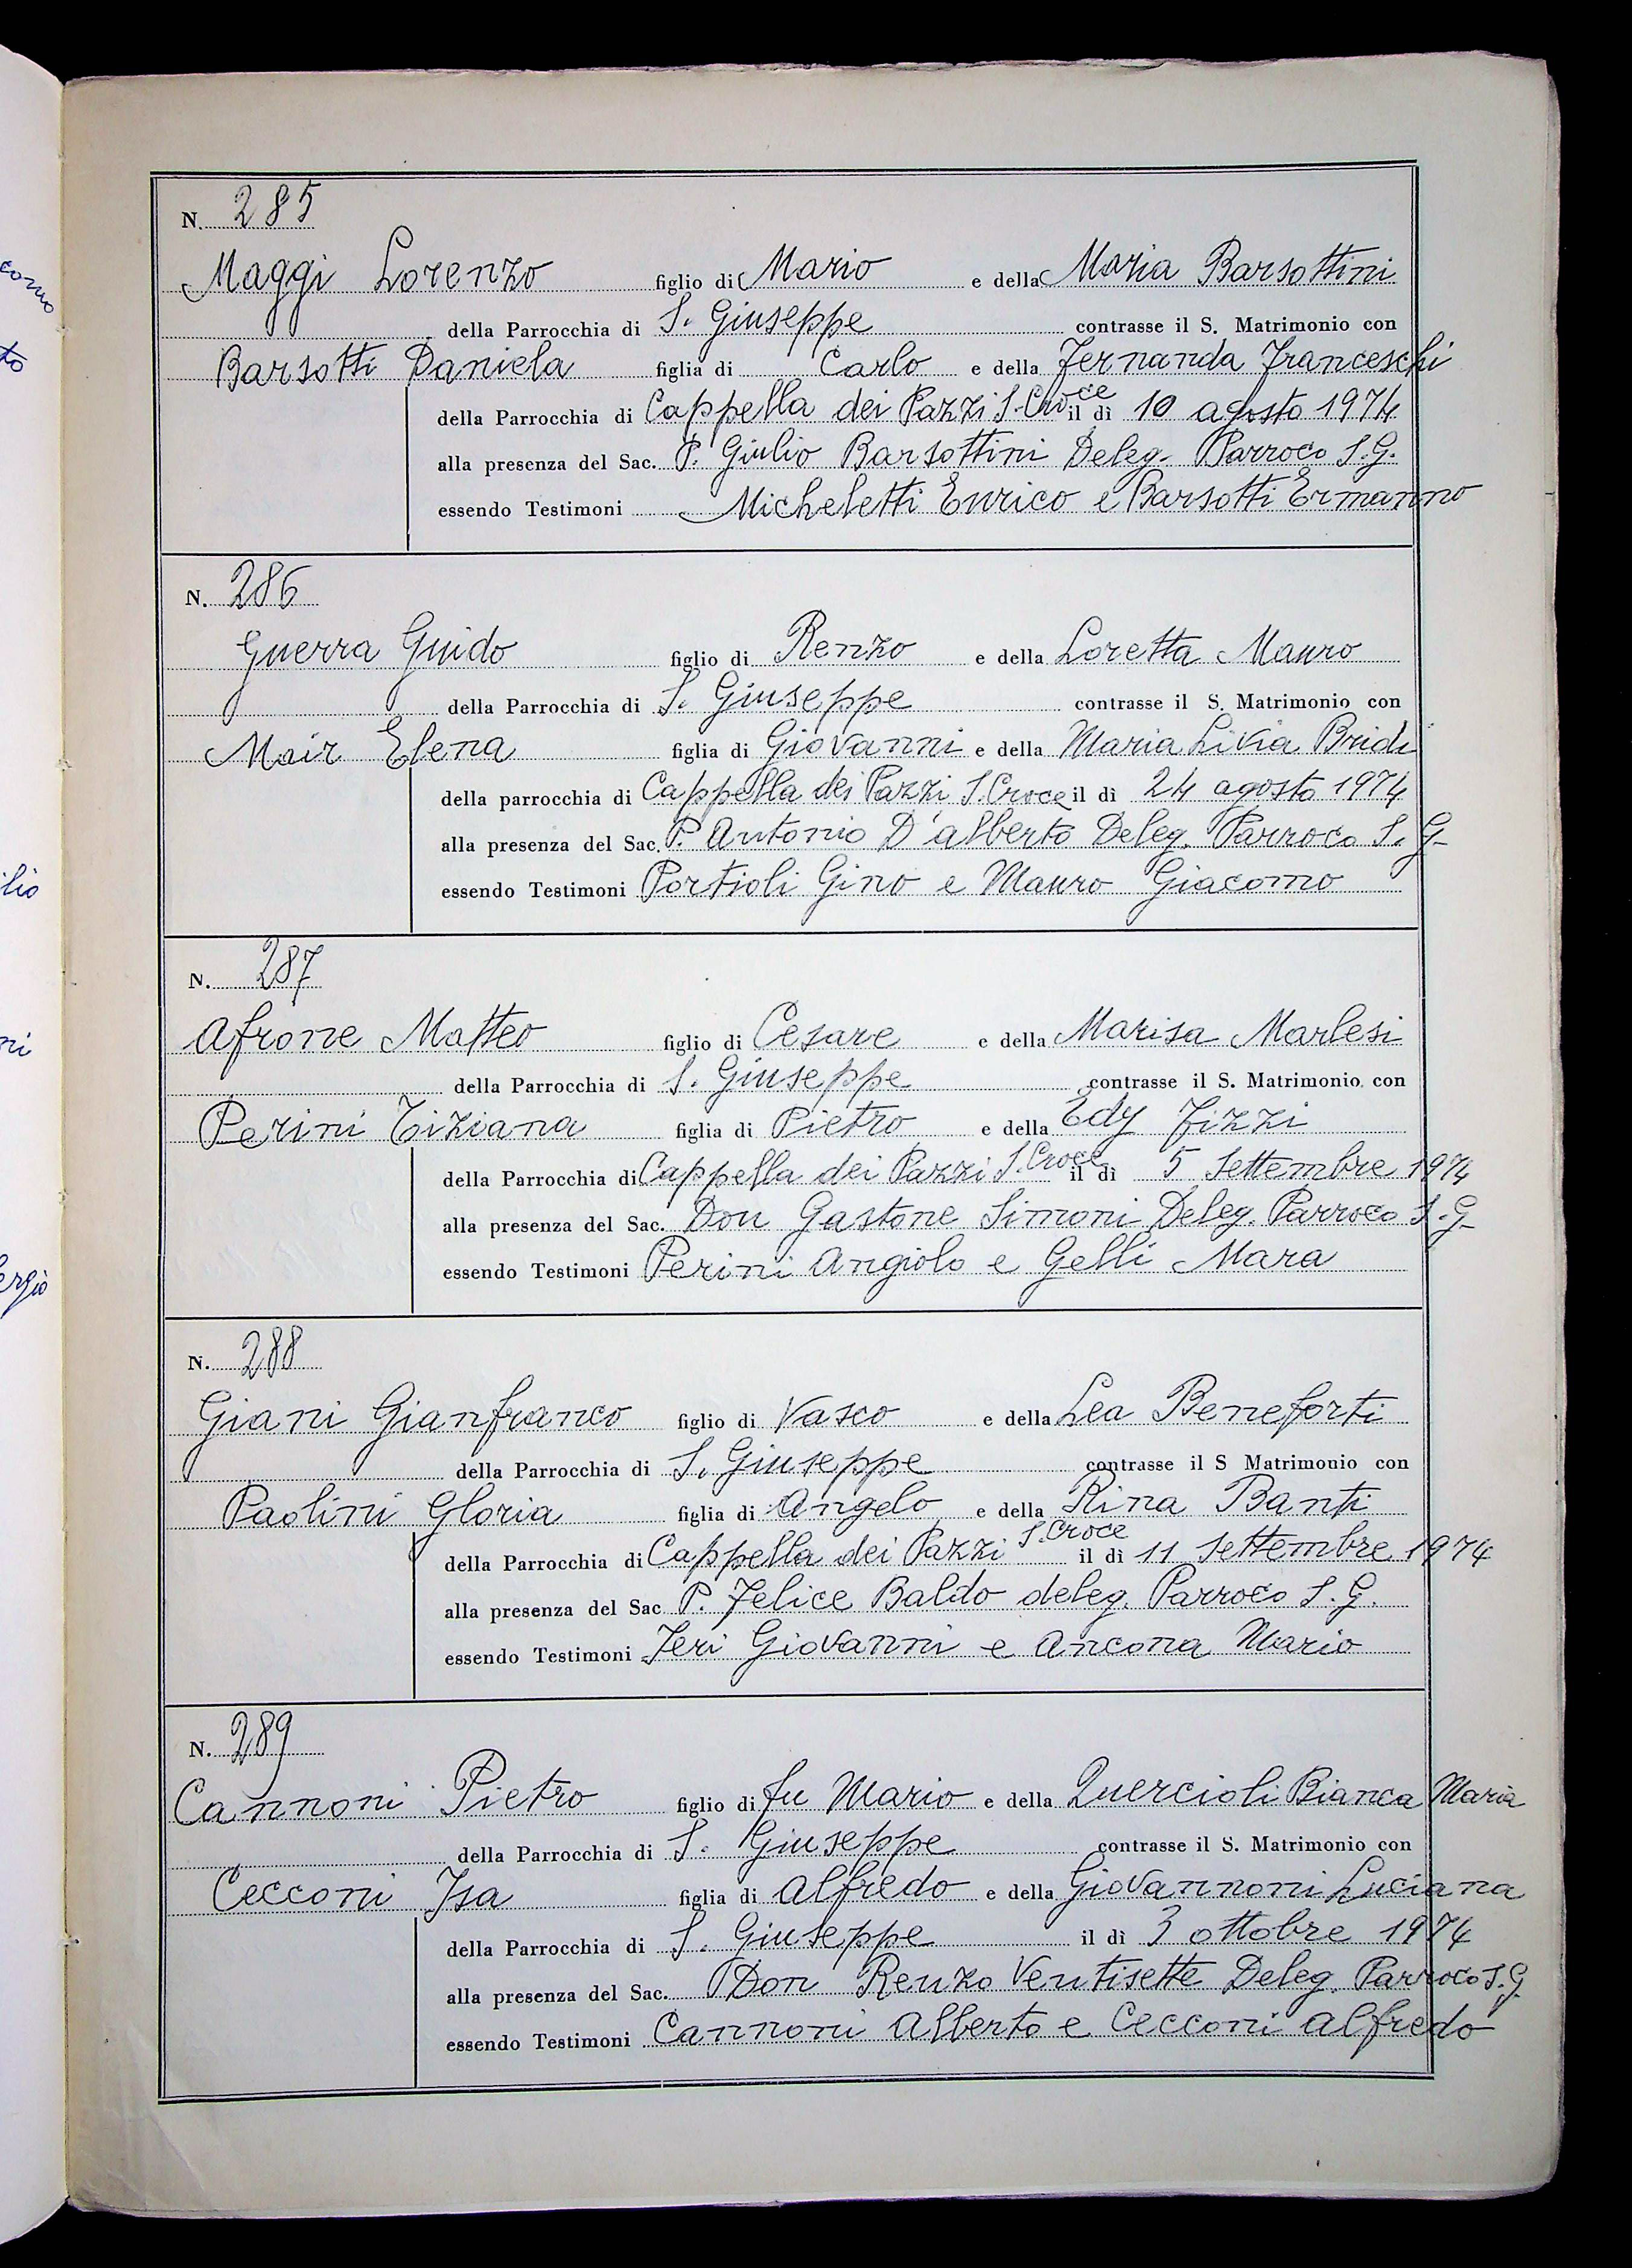 como
to
ilio
ni
ergio
N. 285
Maggi Lorenzo figlio di Mario e della Maria Barsottini
della Parrocchia di S. Giuseppe contrasse il S. Matrimonio con
Barsotti Daniela figlia di Carlo e della Fernanda Franceschi
della Parrocchia di Cappella dei Pazzi S. Croce il dì 10 agosto 1974
alla presenza del Sac. P. Giulio Barsottini Deleg. Parroco S.G.
essendo Testimoni Micheletti Enrico e Barsotti Ermanno
N. 286
Guerra Guido figlio di Renzo e della Loretta Mauro
della Parrocchia di S. Giuseppe contrasse il S. Matrimonio con
Mair Elena figlia di Giovanni e della Maria Livia Bridi
della parrocchia di Cappella dei Pazzi S. Croce il dì 24 agosto 1974
alla presenza del Sac. P. Antonio D'alberto Deleg. Parroco S. G.
essendo Testimoni Portioli Gino e Mauro Giacomo
N. 287
Afrone Matteo figlio di Cesare e della Marisa Marlesi
della Parrocchia di S. Giuseppe contrasse il S. Matrimonio con
Perini Tiziana figlia di Pietro e della Edy Fizzi
della Parrocchia di Cappella dei Pazzi S. Croce il dì 5 Settembre 1974
alla presenza del Sac. Don Gastone Simoni Deleg. Parroco S.G.
essendo Testimoni Perini Angiolo e Gelli Mara
N. 288
Giani Gianfranco figlio di Vasco e della Lea Beneforti
della Parrocchia di S. Giuseppe contrasse il S Matrimonio con
Paolini Gloria figlia di Angelo e della Rina Banti
della Parrocchia di Cappella dei Pazzi S. Croce il dì 11 Settembre 1974
alla presenza del Sac P. Felice Baldo deleg. Parroco S.G.
essendo Testimoni Feri Giovanni e Ancona Mario
N. 289
Cannoni Pietro figlio di fu Mario e della Quercioli Bianca Maria
della Parrocchia di S. Giuseppe contrasse il S. Matrimonio con
Cecconi Isa figlia di Alfredo e della Giovannoni Luciana
della Parrocchia di S. Giuseppe il dì 3 ottobre 1974
alla presenza del Sac. Don Renzo Ventisette Deleg. Parroco S.G.
essendo Testimoni Cannoni Alberto e Cecconi Alfredo